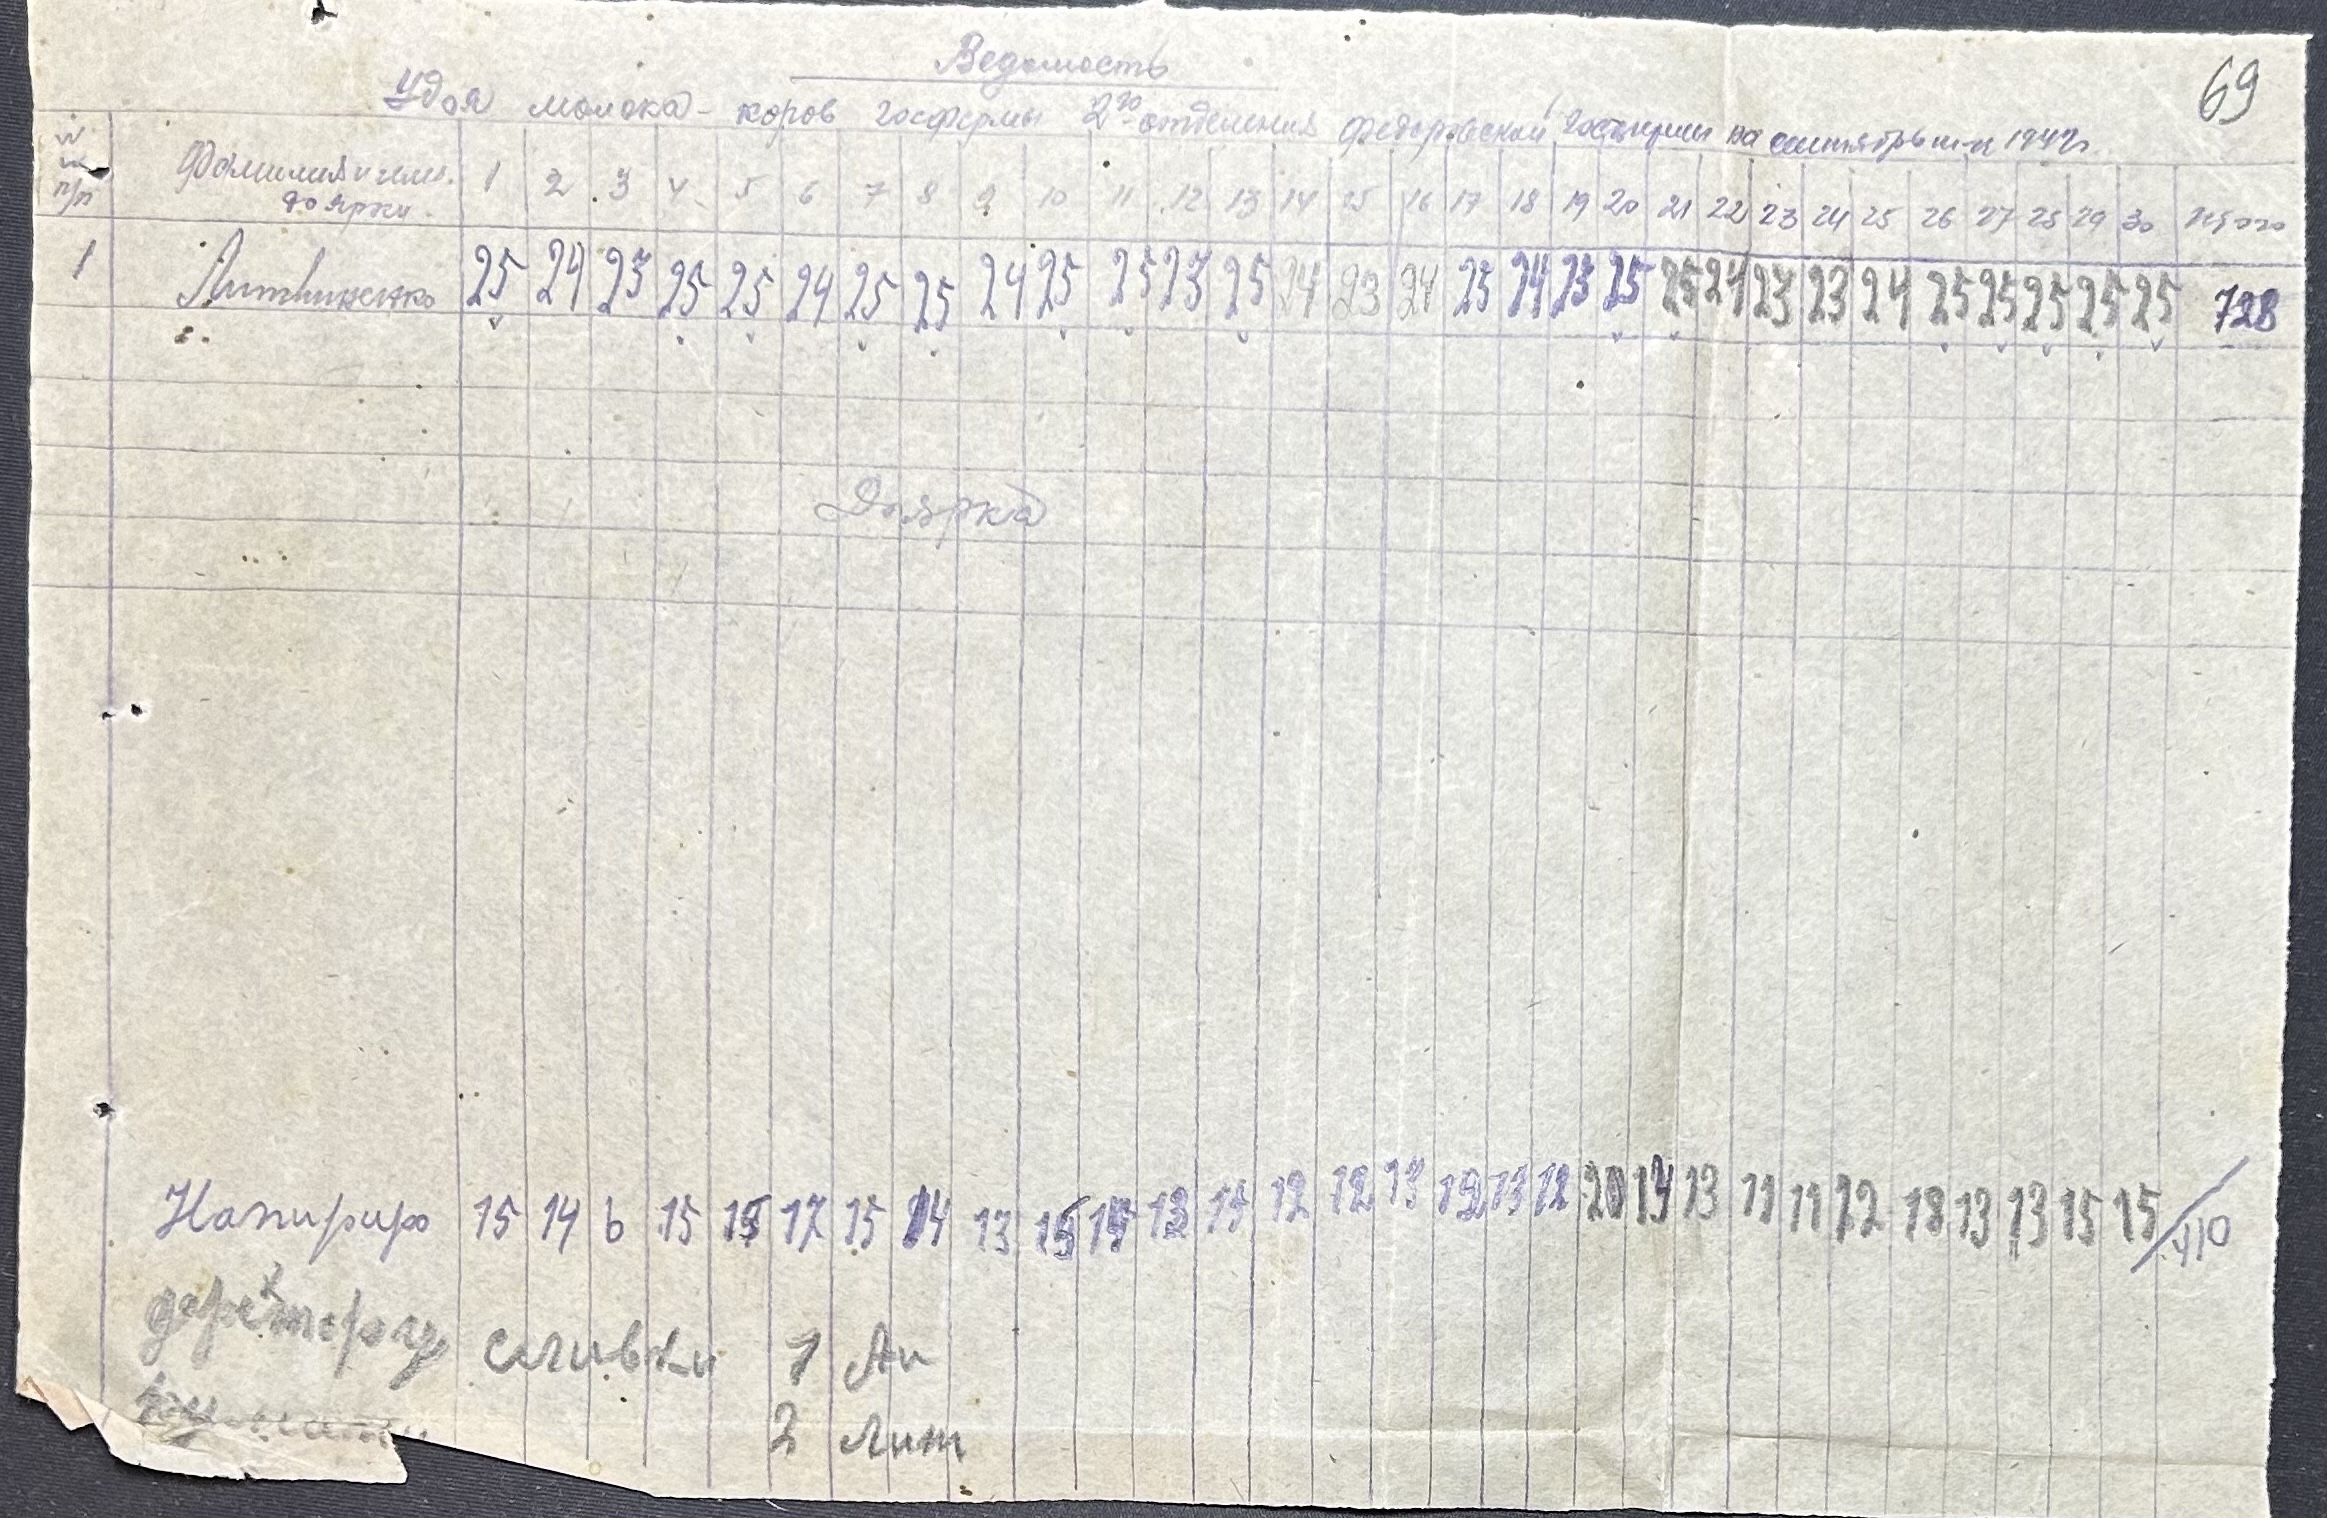 69
Ведомость
Удоя молока - коров госфермы 2го отделения Федоровской госфермы на сентябрь м-ц 1942г
№ № п/п Фамилия и имя доярки 1 2 3 4 5 6 7 8 9 10 11 12 13 14 15 16 17 18 19 20 21 22 23 24 25 26 27 28 29 30 Итого
1 Литвиненко 25 24 23 25 25 24 25 25 24 25 25 23 25 24 23 24 23 24 23 25 25 24 23 23 24 25 25 25 25 25 728
Доярка
15 14 6 15 15 17 15 14 13 15 15 12 15 12 12 13 12 13 12 20 14 13 11 11 12 18 13 13 15 15 410
сливки 1 Ли
2 Лит